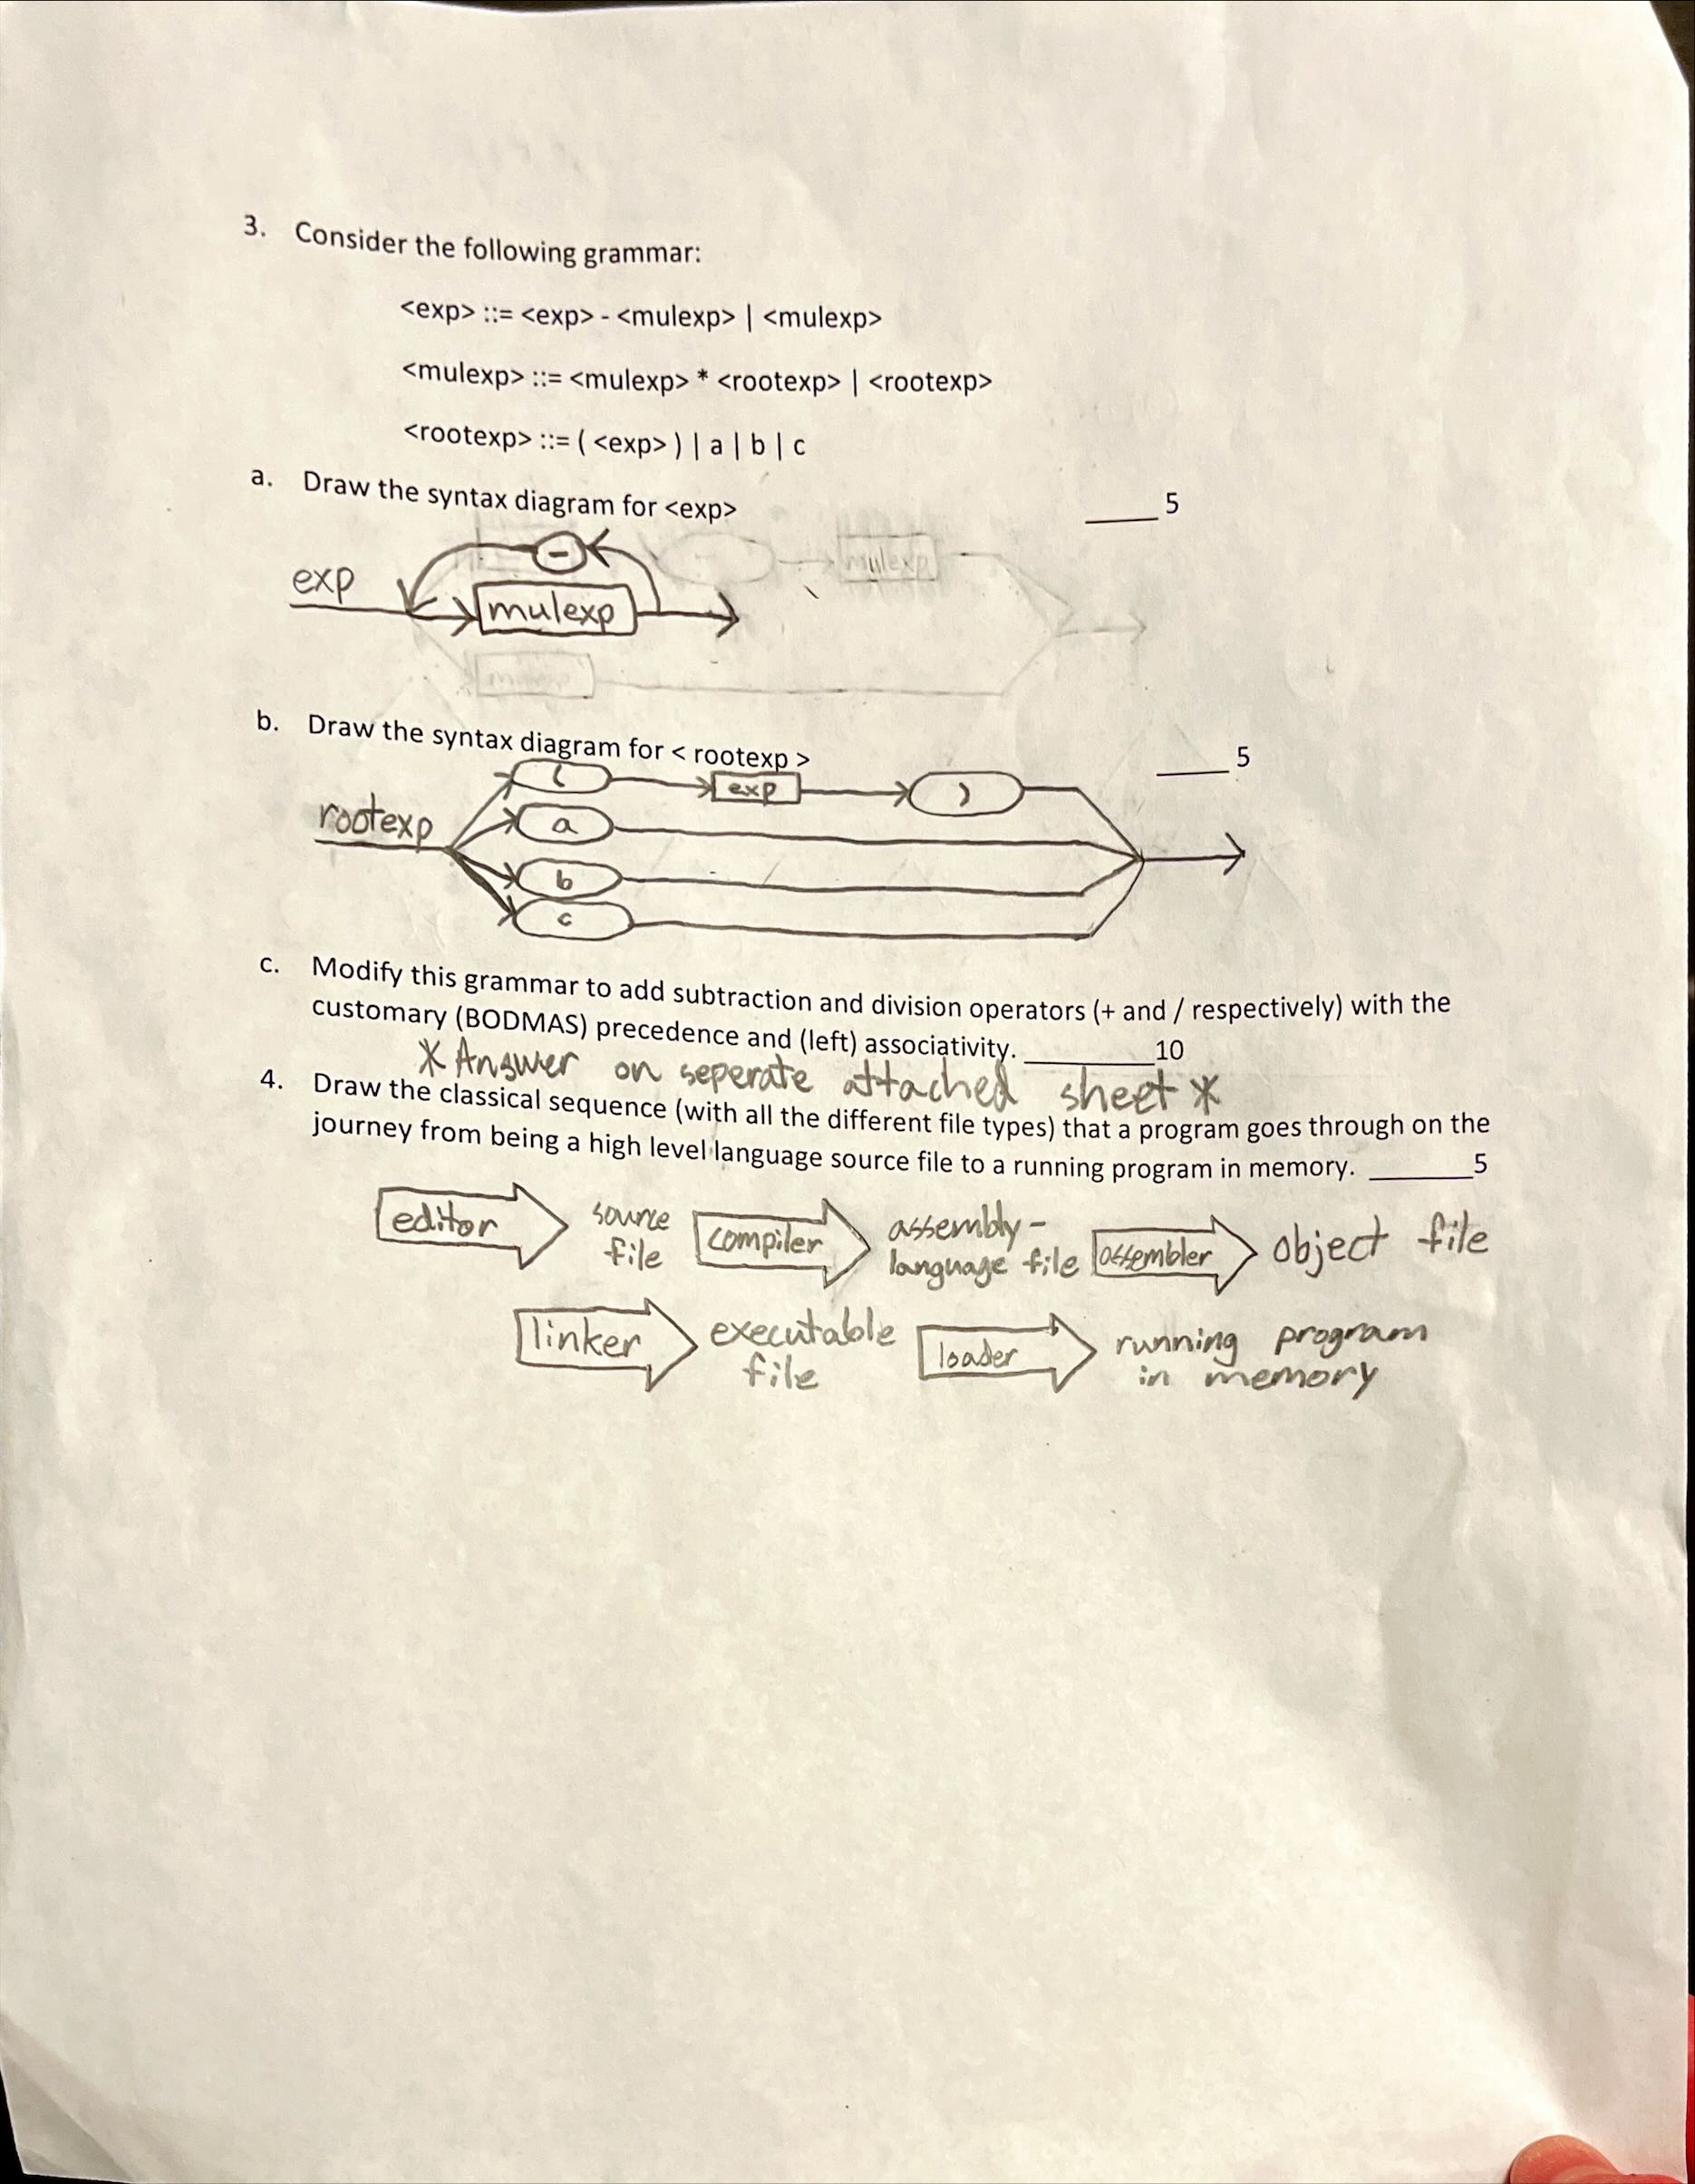 3. Consider the following grammar:
<exp> ::= <exp> - <mulexp> | <mulexp>
<mulexp> ::= <mulexp> * <rootexp> | <rootexp>
<rootexp> ::= ( <exp> ) | a | b | c
a. Draw the syntax diagram for <exp> _____ 5
-
mulexp
exp
mulexp
b. Draw the syntax diagram for < rootexp > _____ 5
( exp )
rootexp
a
b
c
c. Modify this grammar to add subtraction and division operators (+ and / respectively) with the
customary (BODMAS) precedence and (left) associativity. _________10
* Answer on seperate attached sheet *
4. Draw the classical sequence (with all the different file types) that a program goes through on the
journey from being a high level language source file to a running program in memory. _______5
editor source file compiler assembly-language file assembler object file
linker executable file loader running program in memory